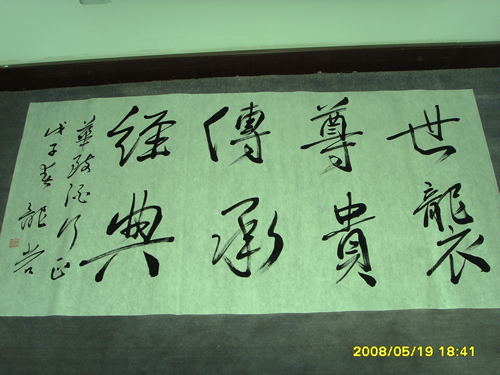 世襲
尊貴
傳承
經典
華致酒行正
戊子春 龍
2008/05/19 18:41